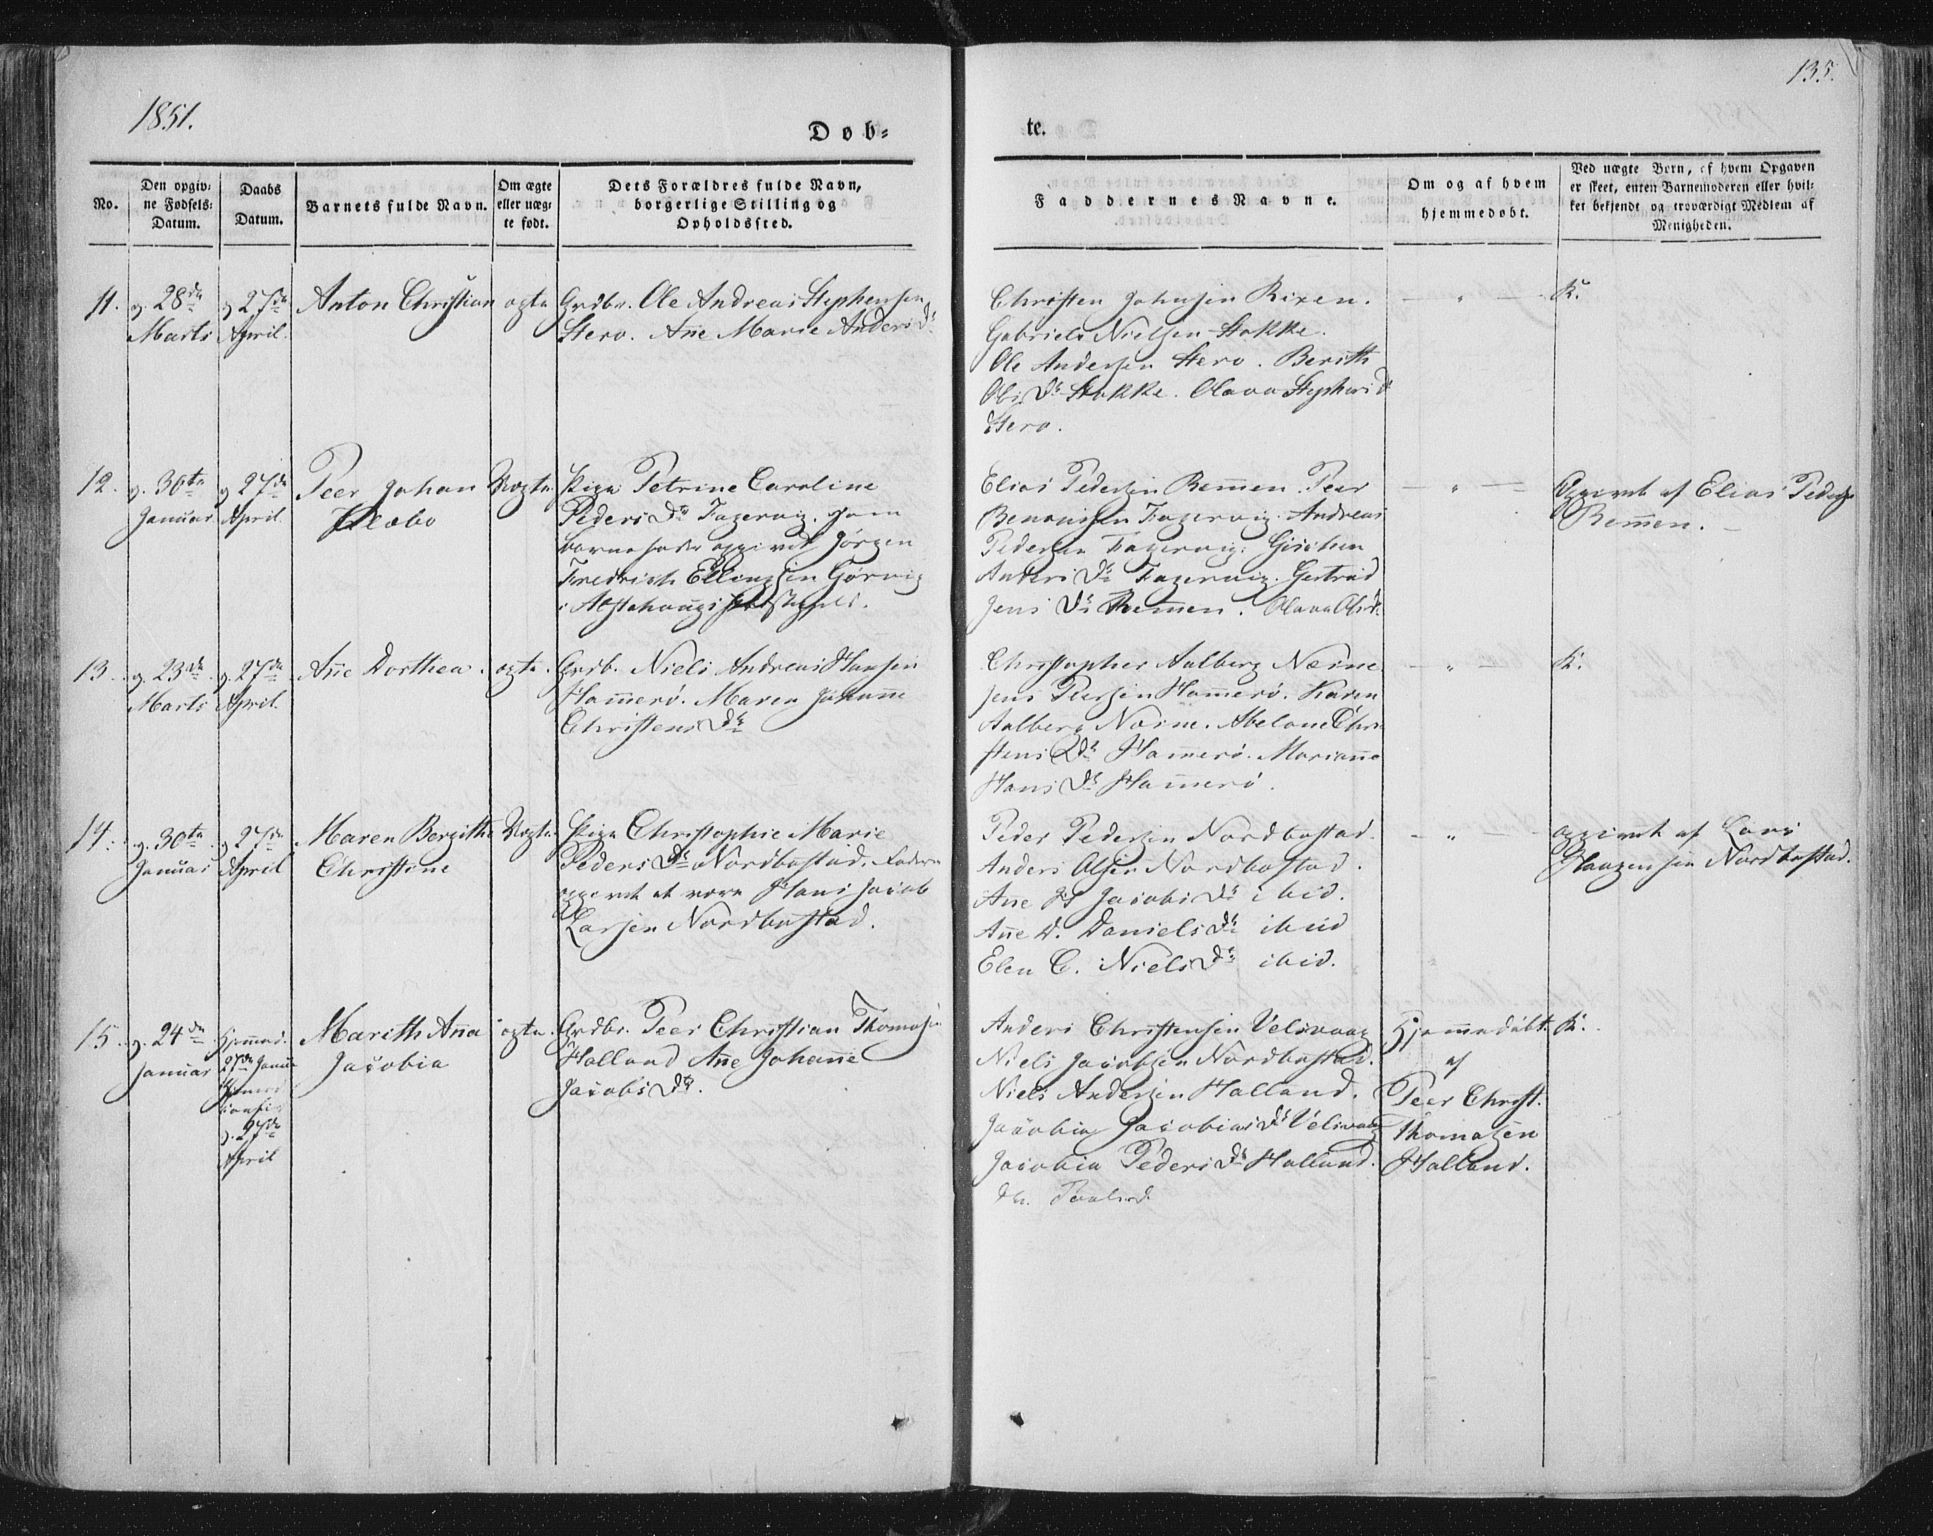 1851.
135.
Døb=
te.
No.
Den opgiv=
ne Fødsels=
Datum.
Daabs
Datum.
Barnets fulde Navn.
Om ægte
eller uæg=
te født.
Dets Forældres fulde Navn,
borgerlige Stilling og
Opholdssted.
Faddernes Navne.
Om og af hvem
hjemmedøbt.
Ved uægte Børn, af hvem Opgaven
er skeet, enten Barnemoderen eller hvil=
ket bekjendt og troværdigt Medlem af
Menigheden.
11.
28de
Marts
27de
April
Anton Christian
ægte
Grdbr. Ole Andreas Stephensen
Stero. Ane Marie Anders Dr
Christen Johnsen Rixen.
Gabriel Nielsen Stokke.
Ole Andersen Stero. Berith
Ols Dr Stokke. Olava Stephens Dr
Stero.
K.
12.
30te
Januar
27de
April
Peer Johan
Klæbo
Uægte
Pige Petrine Caroline
Peders Dr Fagervig. som
barnefader opgivet Jørgen
Fredrich Ellingsen Gørvig
i Alstahougs
Elias Pedersen Remmen. Peer
Benonissen Fagervig. Andreas
Pedersen Fagervig.
Anders Dr Fagervig. Gertrud
Jens Dr Remmen. Olava Ols Dr
Opgivet af Elias Peders.
Remmen.
13.
23de
Marts
27de
April
Ane Dorthea.
ægte.
Grdb. Niels Andreas Hansen
Hammerø. Maren Johanne
Christens Dr
Christopher Aalberg Næsne
Jens Peersen Hammerø. Karen
Aalberg Næsne. Abelone Chri
stens Dr Hammerø. Marianne
Hans Dr Hammerø.
K.
14.
30te
Januar
27de
April
Maren Bergithe
Christine
Uægte
Pige Christophie Marie
Peders Dr Nordbostad. Faderen
opgivet at være Hans Jacob
Larsen Nordbostad.
Peder Pedersen Nordbostad.
Anders Olsen Nordbostad.
Ane Jacobs Dr ibid.
Ane D. Daniels Dr ibid
Elen C. Niels Dr ibid.
opgivet af Lars
Haagensen Nordbostad.
15.
24de
Januar
Hjemmed.
27de Januar
27de
April
Marith Ana
Jacobia
ægte.
Grdbr. Peer Christian Thomasen
Halland Ane Johanne
Jacobs Dr.
Anders Christensen Velsvaag
Niels Jacobsen Nordbostad.
Niels Andersen Halland.
Jacobia Jacobias Dr Velsvaag
Jacobia Peders Dr Halland.
Hjemmedøbt.
af
Peer Christ.
Thomasen
Halland.
K.